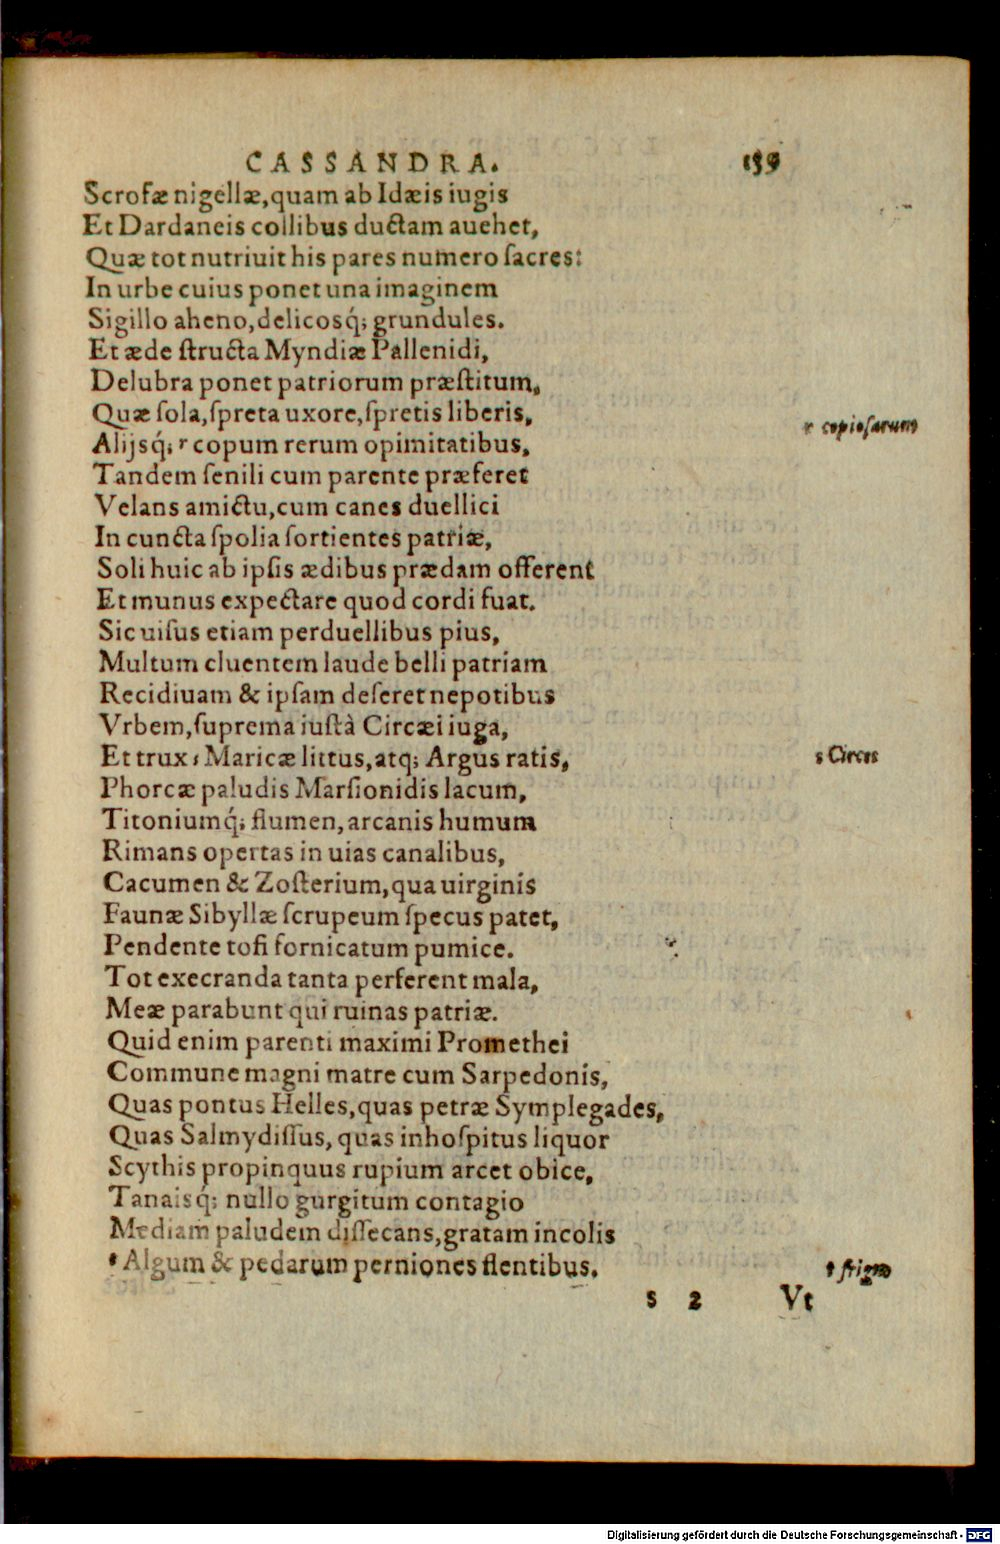 CASSANDRA. 139
Scrofæ nigellæ, quam ab Idæis iugis
Et Dardaneis collibus ductam auehet,
Quæ tot nutriuit his pares numero ſacres:
In urbe cuius ponet una imaginem
Sigillo aheno, delicosq́; grundules.
Et æde ſtructa Myndiæ Pallenidi,
Delubra ponet patriorum præſtitum,
Quæ ſola, ſpreta uxore, ſpretis liberis,
Alijsq́; r copum rerum opimitatibus, r copioſarum
Tandem ſenili cum parente præferet
Velans amictu, cum canes duellici
In cuncta ſpolia ſortientes patriæ,
Soli huic ab ipſis ædibus prædam offerent
Et munus expectare quod cordi fuat.
Sic uiſus etiam perduellibus pius,
Multum cluentem laude belli patriam
Recidiuam & ipſam deſeret nepotibus
Vrbem, ſuprema iuſtà Circæi iuga,
Et trux s Maricæ littus, atq; Argus ratis, s Circes
Phorcæ paludis Marſionidis lacum,
Titoniumq́; flumen, arcanis humum
Rimans opertas in uias canalibus,
Cacumen & Zoſterium, qua uirginis
Faunæ Sibyllæ ſcrupeum ſpecus patet,
Pendente tofi fornicatum pumice.
Tot execranda tanta perferent mala,
Meæ parabunt qui ruinas patriæ.
Quid enim parenti maximi Promethei
Commune magni matre cum Sarpedonis,
Quas pontus Helles, quas petræ Symplegades,
Quas Salmydiſſus, quas inhoſpitus liquor
Scythis propinquus rupium arcet obice,
Tanaisq́; nullo gurgitum contagio
Mediam paludem diſſecans, gratam incolis
t Algum & pedarum perniones flentibus. t frigus
S 2 Vt
Digitalisierung gefördert durch die Deutsche Forschungsgemeinschaft - DFG